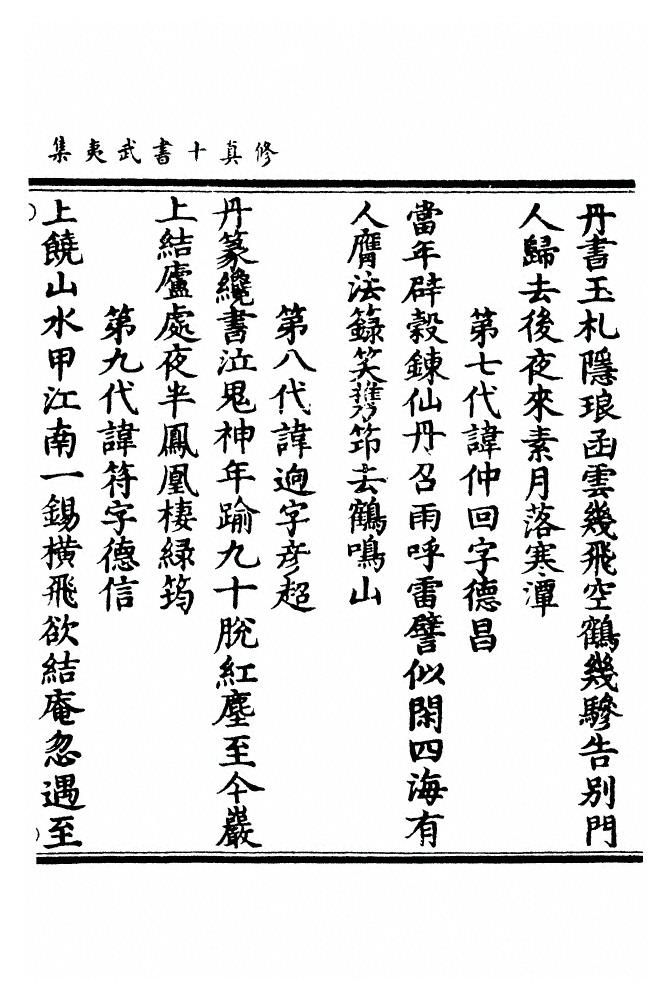 修真十書武夷集
丹書玉札隱琅函雲幾飛空鶴幾驂告別門
人歸去後夜來素月落寒潭
第七代諱仲回字德昌
當年辟穀鍊仙丹召雨呼雷譬似閑四海有
人膺法籙笑攜笻去鶴鳴山
第八代諱逈字彦超
丹篆纔書泣鬼神年踰九十脫紅塵至今巖
上結廬處夜半鳳凰棲緑筠
第九代諱符字德信
上饒山水甲江南一錫橫飛欲結庵忽遇至